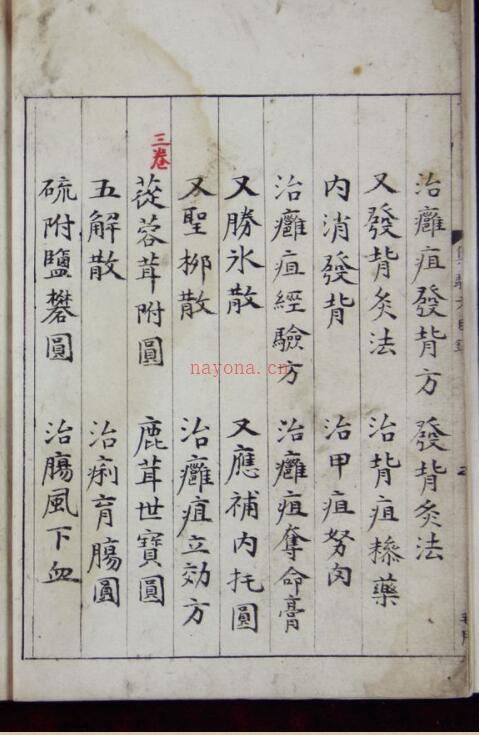 治癰疽發背方 發背灸法
又發背灸法 治背疽糝藥
內消發背 治甲疽努肉
治癰疽經驗方 治癰疽奪命膏
又勝氷散 又應補內托圓
又聖柳散 治癰疽立効方
三卷
蓯蓉茸附圓 鹿茸世寶圓
五解散 治痢育膓圓
硫附鹽礬圓 治膓風下血
nayona.cn